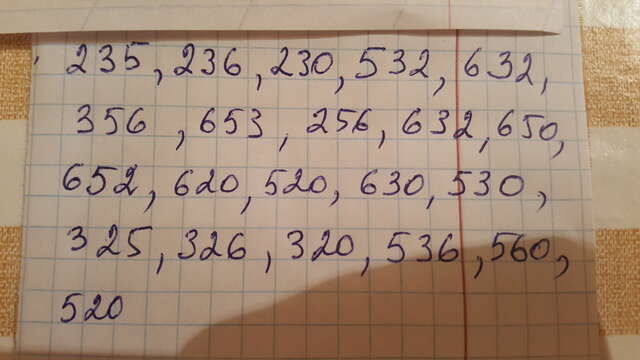 235, 236, 230, 532, 632,
356, 653, 256, 632, 650,
652, 620, 520, 630, 530,
325, 326, 320, 536, 560,
520